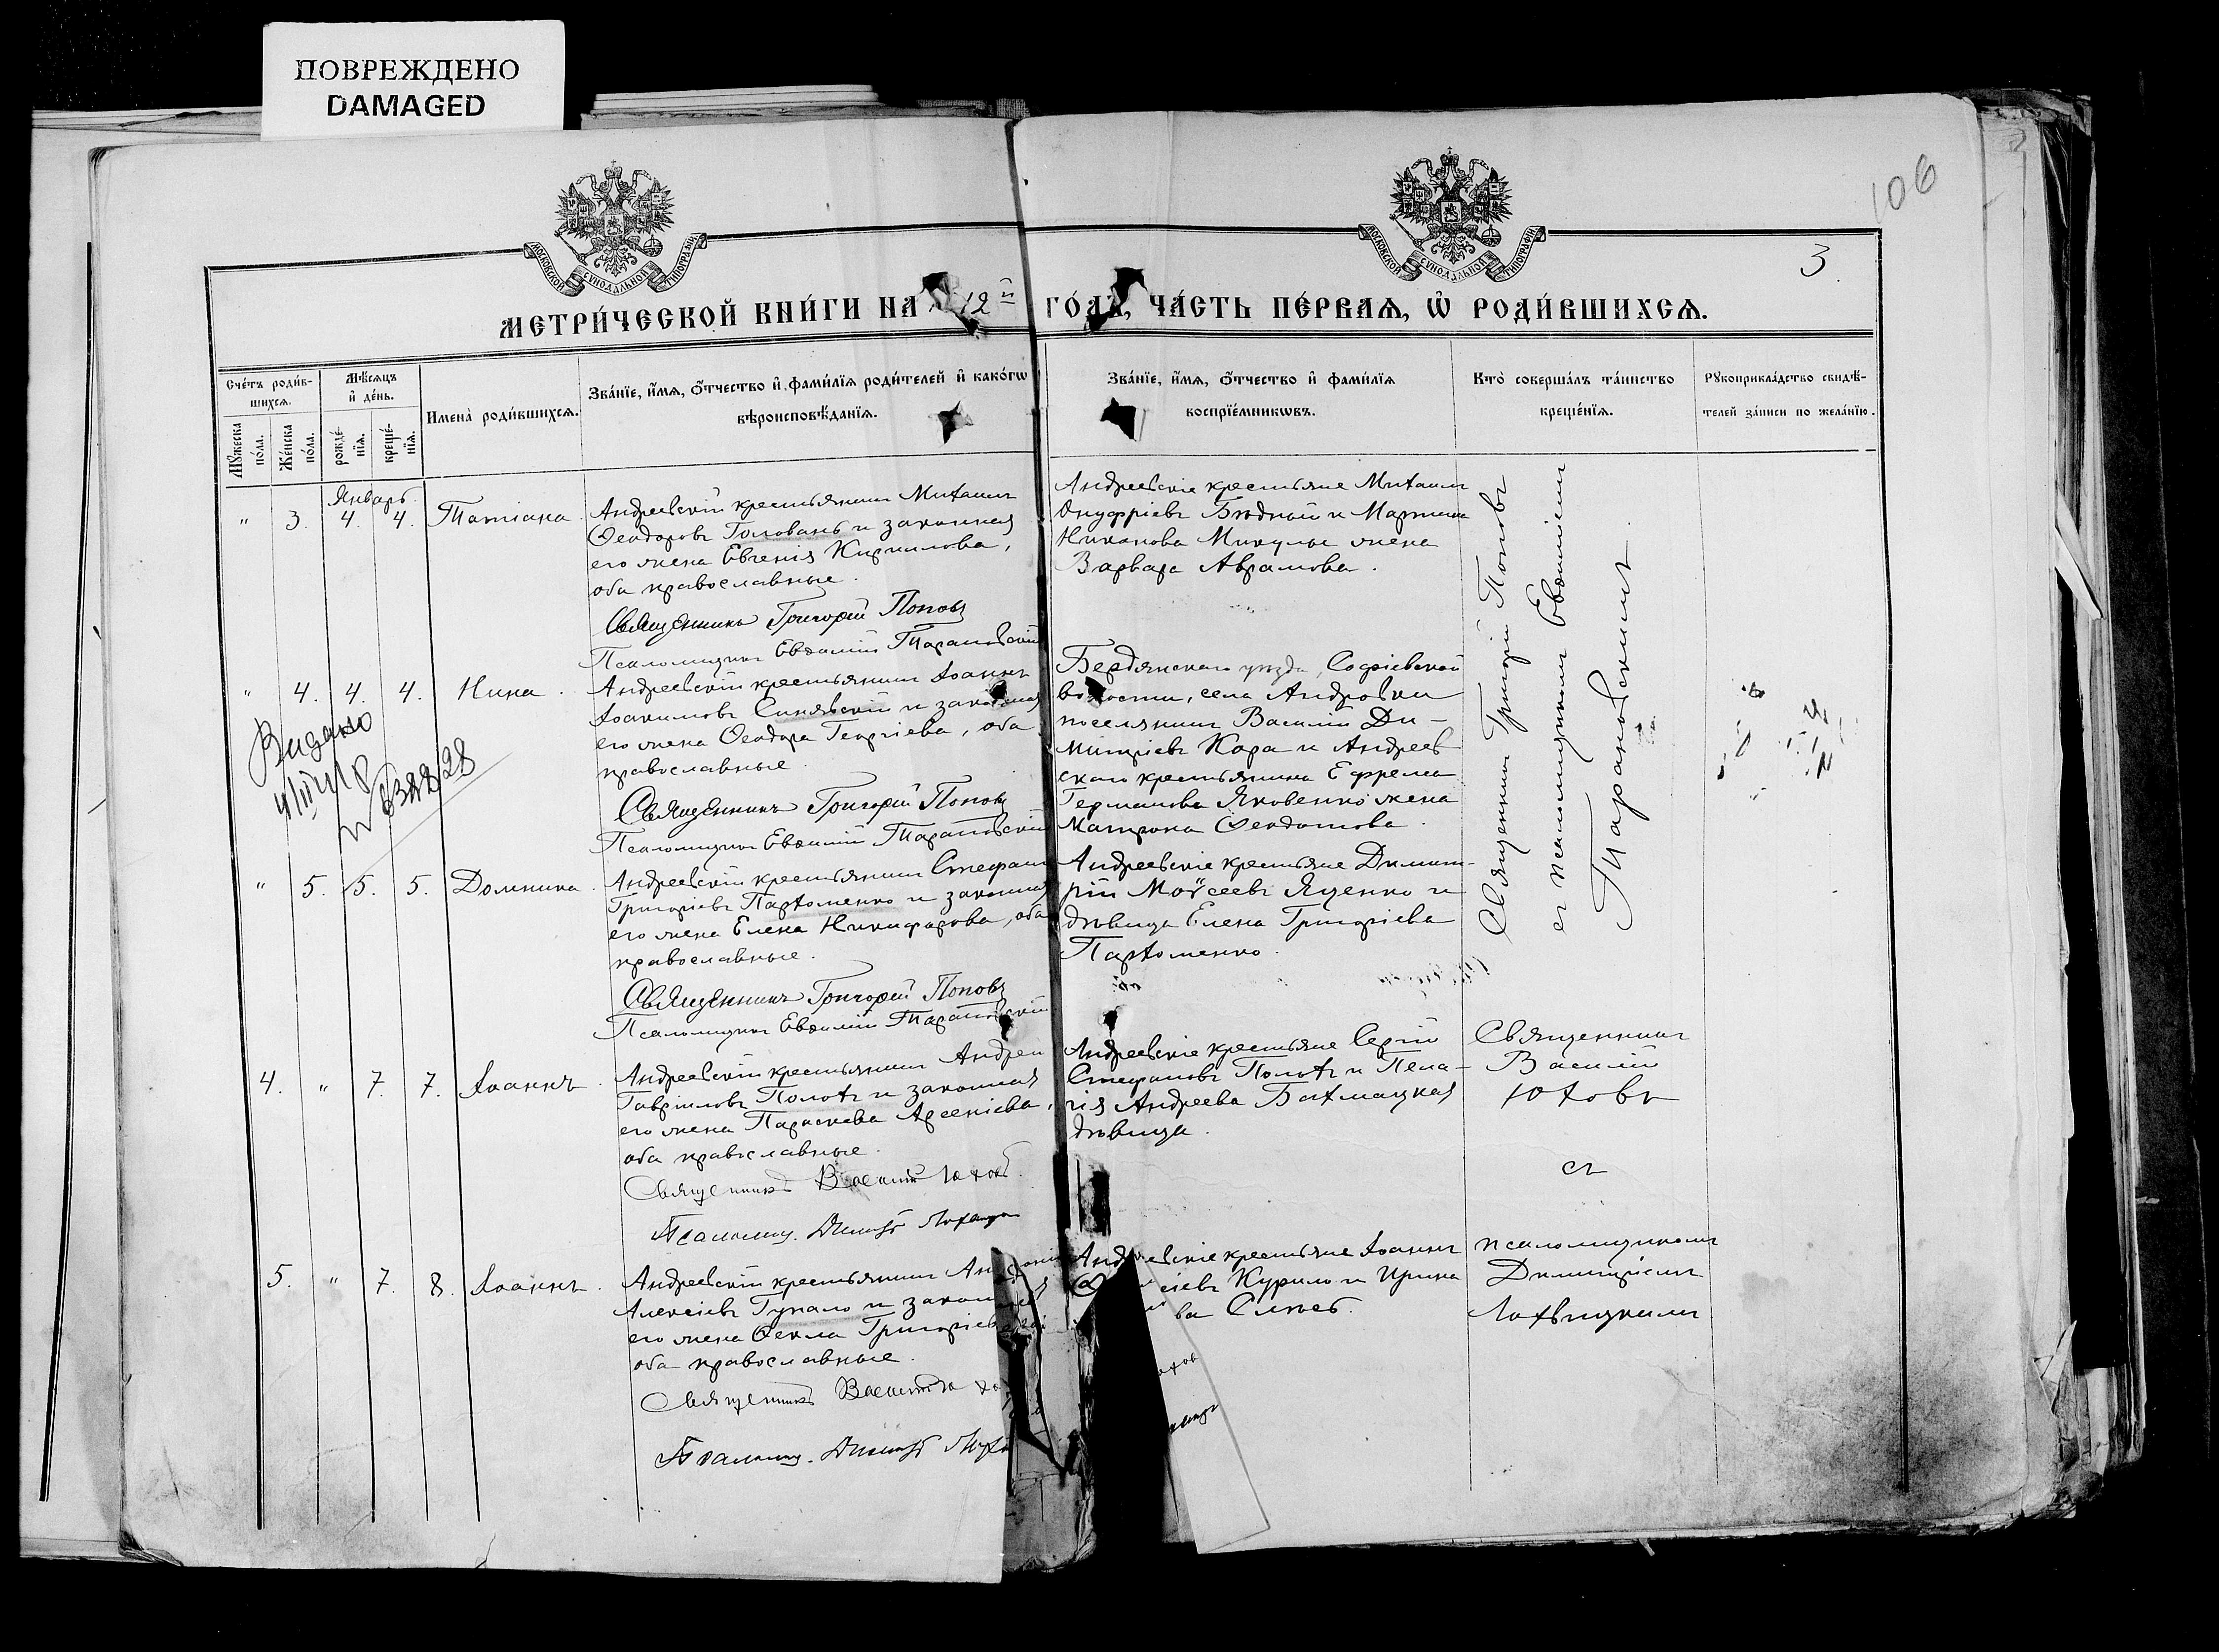 ПОВРЕЖДЕНО
DAMAGED
106
3.
МОСКОВСКОЙ СѴНОДАЛЬНОЙ ТИПОГРАФІИ
МОСКОВСКОЙ СѴНОДАЛЬНОЙ ТИПОГРАФІИ
МЕТРИ́ЧЕСКОЙ КНИ́ГИ НА 12й ГО́ДЪ, ЧА́СТЬ ПЕ́РВАѦ, Ѡ҆ РОДИ́ВШИХСѦ.
Сче́тъ роди́вшихсѧ.
Мꙋ́жеска по́ла.
Же́нска по́ла.
Мѣ́сѧцъ и҆ де́нь.
рожде́нїѧ.
креще́нїѧ.
Имена̀ роди́вшихсѧ.
Зва́нїе, и҆́мѧ, ѻ҆́тчество и҆ фами́лїѧ роди́телей и҆ како́гѡ вѣроисповѣ́данїѧ.
Зва́нїе, и҆́мѧ, ѻ҆́тчество и҆ фами́лїѧ воспрїе́мникѡвъ.
Кто̀ соверша́лъ та́инство креще́нїѧ.
Рꙋкоприкла́дство свидѣ́телей за́писи по жела́нїю.
Январь.
" 3. 4. 4. Татіана
Андреевскій крестьянинъ Михаилъ
Ѳеодоровъ Головань и законная
его жена Евгенія Кирилова,
оба православные.
Священникъ Григорій Поповъ
Псаломщикъ Евѳимій Тарановскій
Андреевскіе крестьяне Михаилъ
Онуфріевъ Бѣдный и Мартина
Никонова Микулы жена
Варвара Аврамова.
Священникъ Григорій Поповъ
съ псаломщикомъ Евѳиміемъ
Тарановскимъ.
" 4. 4. 4. Нина.
Андреевскій крестьянинъ Іоаннъ
Іоакимовъ Синявскій и законная
его жена Ѳеодора Георгіева, оба
православные.
Священникъ Григорій Поповъ
Псаломщикъ Евѳимій Тарановскій
Бердянскаго уѣзда, Софіевской
волости, села Андровки
поселянинъ Василій Ди-
митріевъ Кора и Андреев
скаго крестьянина Ефрема
Германова Яковенко жена
Матрона Ѳеодотова.
Видано
" 5. 5. 5. Домника.
Андреевскій крестьянинъ Стефанъ
Григоріевъ Парѳоменко и законная
его жена Елена Никифорова, оба
православные.
Священникъ Григорій Поповъ
Псаломщикъ Евѳимій Тарановскій
Андреевскіе крестьяне Димит-
рій Моѵсеевъ Яценко и
дѣвица Елена Григоріева
Парѳоменко.
4. " 7. 7. Іоаннъ.
Андреевскій крестьянинъ Андрей
Гавріиловъ Полохъ и законная
его жена Параскева Арсеніева,
оба православные.
Священникъ Василій Юховъ.
Псаломщ. Димитр Лохвицк
Андреевскіе крестьяне Сергій
Стефановъ Полохъ и Пела-
гія Андреева Бахмацкая
дѣвица.
Священникъ
Василій
Юховъ
съ
псаломщикомъ
Димитріемъ
Лохвицкимъ
5. " 7. 8. Іоаннъ.
Андреевскій крестьянинъ
Алексіевъ Гупало и законная
его жена Ѳекла Григоріева
оба православные.
Священникъ Василій
Псаломщ. Димитр
Андреевскіе крестьяне Іоаннъ
Курило и Ирина